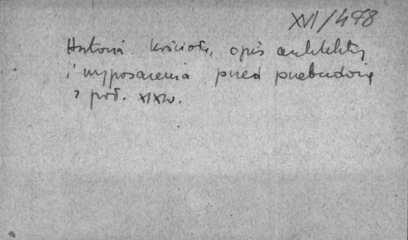 XVI/478
Historia kościoła, opis architektury
i wyposażenia przed przebudową
z poł. XIX w.